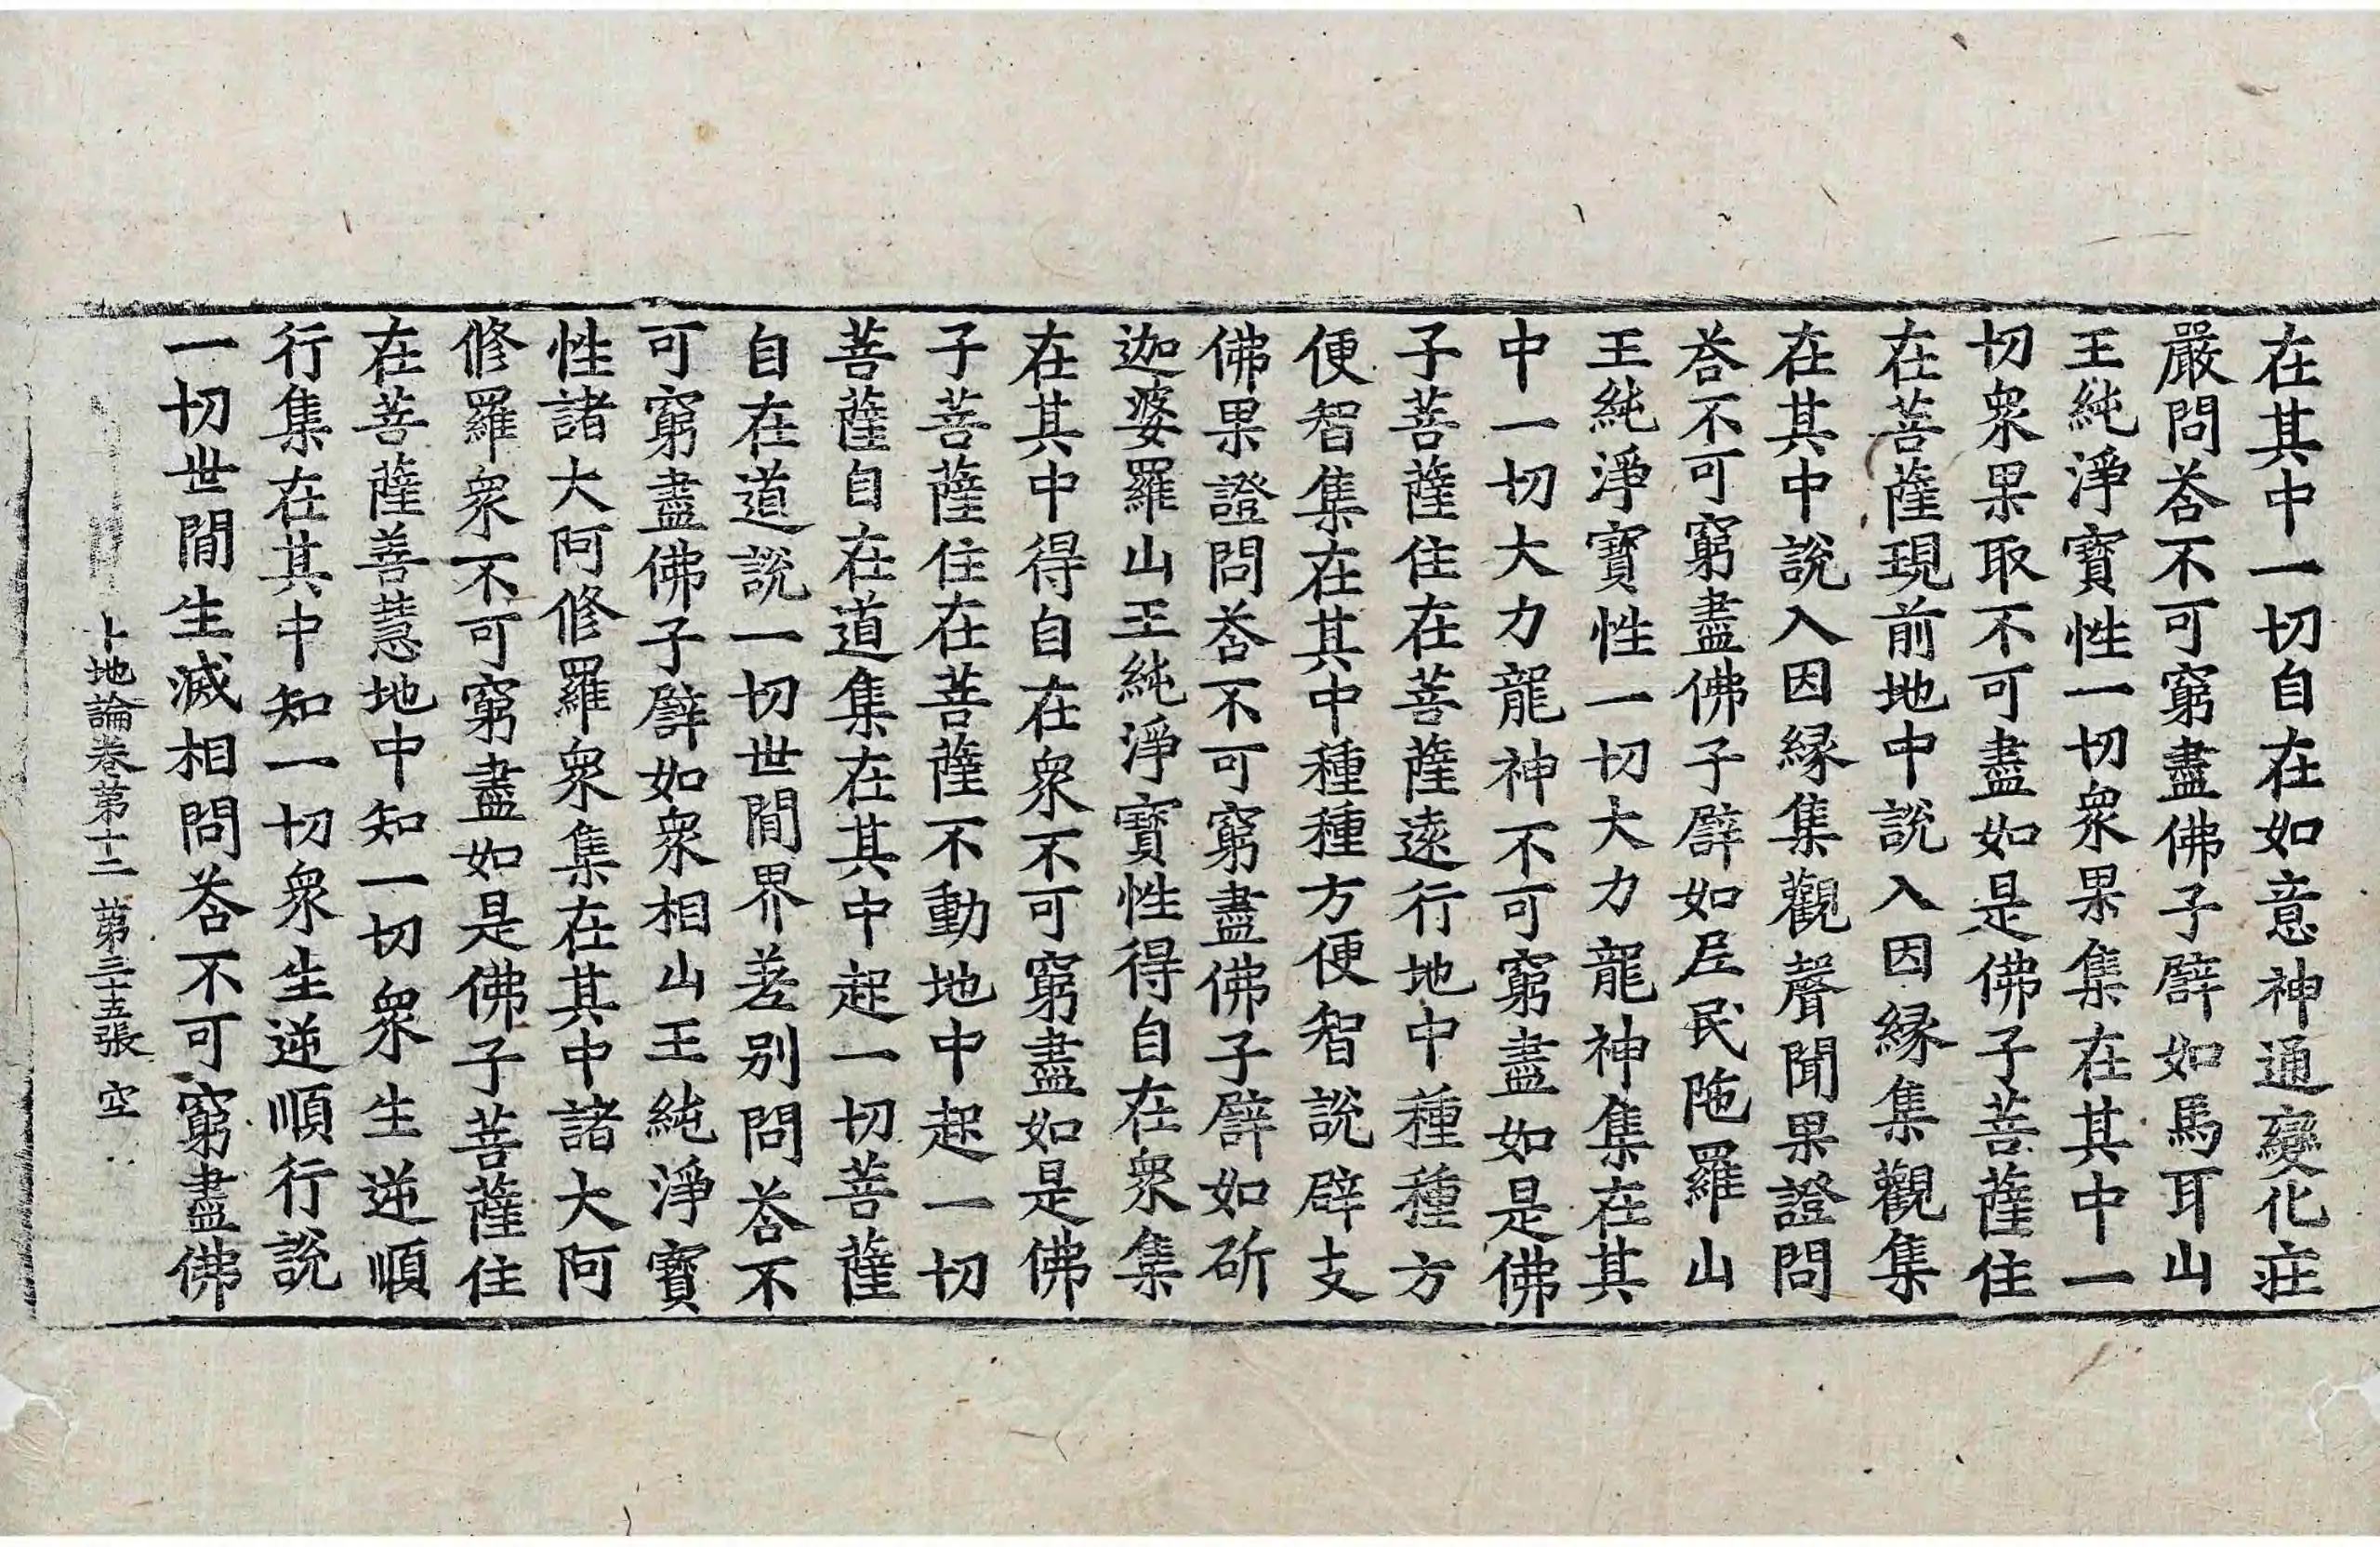 在其中一切自在如意神通變化莊
嚴問荅不可窮盡佛子譬如馬耳山
王純淨寶性一切衆果集在其中一
切衆果取不可盡如是佛子菩薩住
在菩薩現前地中說入因緣集觀集
在其中說入因緣集觀聲聞果證問
荅不可窮盡佛子譬如𡰱民陁羅山
王純淨寶性一切大力龍神集在其
中一切大力龍神不可窮盡如是佛
子菩薩住在菩薩遠行地中種種方
便智集在其中種種方便智說辟支
佛果證問荅不可窮盡佛子譬如斫
迦婆羅山王純淨寶性得自在衆集
在其中得自在衆不可窮盡如是佛
子菩薩住在菩薩不動地中起一切
菩薩自在道集在其中起一切菩薩
自在道說一切世間界差別問荅不
可窮盡佛子譬如衆相山王純淨寶
性諸大阿修羅衆集在其中諸大阿
修羅衆不可窮盡如是佛子菩薩住
在菩薩善慧地中知一切衆生逆順
行集在其中知一切衆生逆順行說
一切世間生滅相問荅不可窮盡佛
十地論卷第十二 第三十五張 空